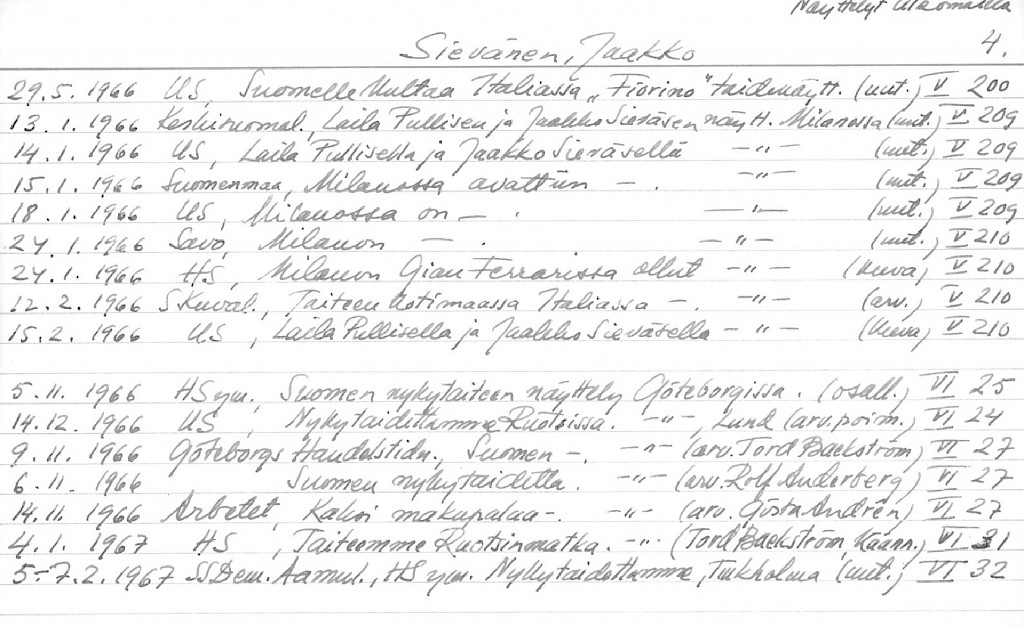 Näyttelyt ulkomailla
4.
Sievänen, Jaakko
29.5.1966 US, Suomelle kultaa Italiassa, „Fiorino" taidenäytt. (uut.) V 200
13.1.1966 Keskisuomal., Laila Pullisen ja Jaakko Sieväsen näytt. Milanossa (uut.) V 209
14.1.1966 US, Laila Pullisella ja Jaakko Sieväsellä —"— (uut.) V 209
15.1.1966 Suomenmaa, Milanossa avattiin —. —"— (uut.) V 209
18.1.1966 US, Milanossa on —. —"— (uut.) V 209
24.1.1966 Savo, Milanon —. —"— (uut.) V 210
24.1.1966 HS, Milanon Gian Ferrarissa ollut —"— (kuva) V 210
12.2.1966 S Kuval., Taiteen kotimaassa Italiassa —. —"— (arv.) V 210
15.2.1966 US, Laila Pullisella ja Jaakko Sieväsellä —"— (kuva) V 210
5.11.1966 HS ym., Suomen nykytaiteen näyttely Göteborgissa. (osall.) VI 25
14.12.1966 US, Nykytaidettamme Ruotsissa. —"—, Lund (arv. poim.) VI 24
9.11.1966 Göteborgs Handelstidn., Suomen —. —"— (arv. Tord Baeckström) VI 27
6.11.1966 Suomen nykytaidetta. —"— (arv. Rolf Anderberg) VI 27
14.11.1966 Arbetet, Kaksi makupalaa —. —"— (arv. Gösta Andrén) VI 27
4.1.1967 HS, Taiteemme Ruotsinmatka. —"— (Tord Baeckström, käänn.) VI 31
5.-7.2.1967 SSDem. Aamul., HS ym. Nykytaidettamme, Tukholma (uut.) VI 32